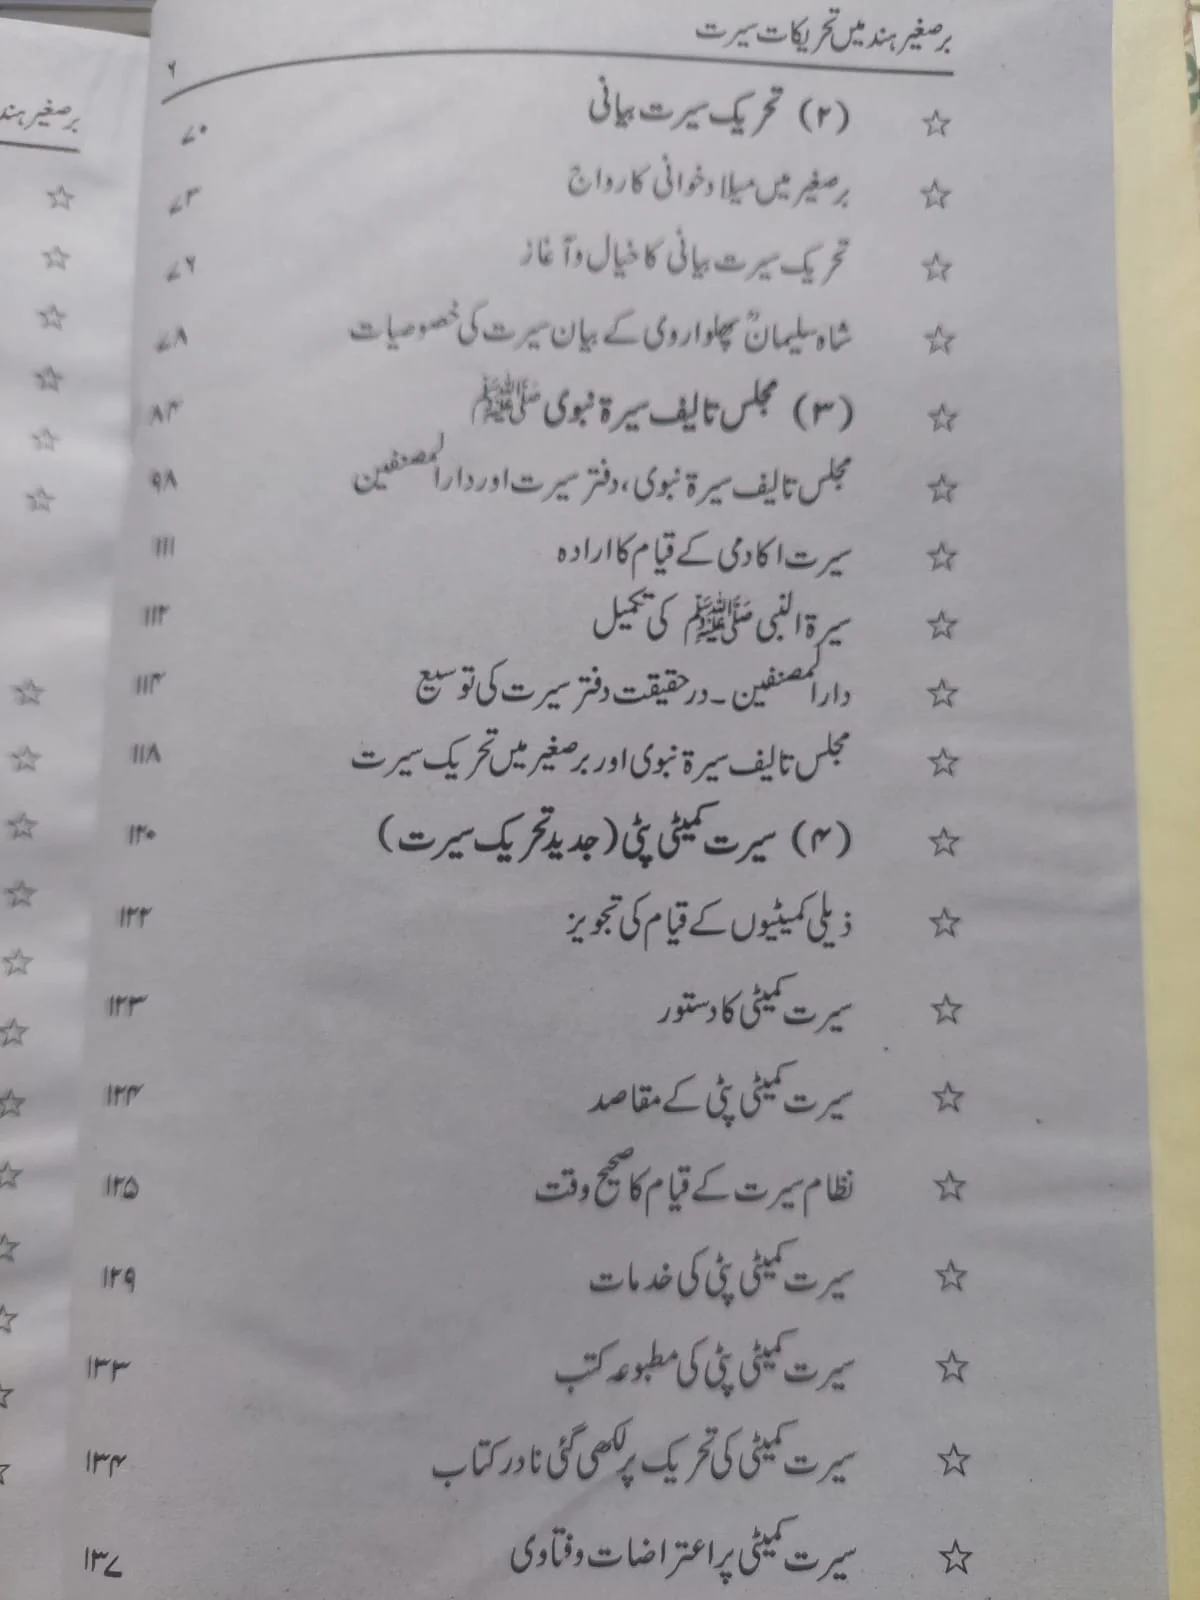 برصغیر ہند میں تحریکات سیرت
۶
☆ (۲) تحریک سیرت بیانی ۷۰
☆ برصغیر میں میلاد خوانی کا رواج ۷۳
☆ تحریک سیرت بیانی کا خیال و آغاز ۷۶
☆ شاہ سلیمانؒ پھلواروی کے بیان سیرت کی خصوصیات ۷۸
☆ (۳) مجلس تالیف سیرۃ نبوی ﷺ ۸۴
☆ مجلس تالیف سیرۃ نبوی، دفتر سیرت اور دارالمصنفین ۹۸
☆ سیرت اکادمی کے قیام کا ارادہ ۱۱۱
☆ سیرۃ النبی ﷺ کی تکمیل ۱۱۲
☆ دارالمصنفین۔ درحقیقت دفتر سیرت کی توسیع ۱۱۴
☆ مجلس تالیف سیرۃ نبوی اور برصغیر میں تحریک سیرت ۱۱۸
☆ (۴) سیرت کمیٹی پٹی (جدید تحریک سیرت) ۱۲۰
☆ ذیلی کمیٹیوں کے قیام کی تجویز ۱۲۲
☆ سیرت کمیٹی کا دستور ۱۲۳
☆ سیرت کمیٹی پٹی کے مقاصد ۱۲۴
☆ نظام سیرت کے قیام کا صحیح وقت ۱۲۵
☆ سیرت کمیٹی پٹی کی خدمات ۱۲۹
☆ سیرت کمیٹی پٹی کی مطبوعہ کتب ۱۳۳
☆ سیرت کمیٹی کی تحریک پر لکھی گئی نادر کتاب ۱۳۴
☆ سیرت کمیٹی پر اعتراضات و فتاوی ۱۳۷
برصغیر ہند